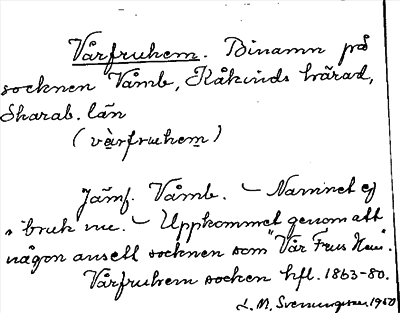 Vårfruhem. Binamn på
socknen Våmb, Kåkinds härad,
Skarab. län
(vàrfruhem)
Jämf. Våmb. – Namnet ej
i bruk nu. – Uppkommet genom att
någon ansett socknen som "Vår Frus Hem".
Vårfruhem socken hfl. 1863-80.
L. M. Svenungsson, 1950